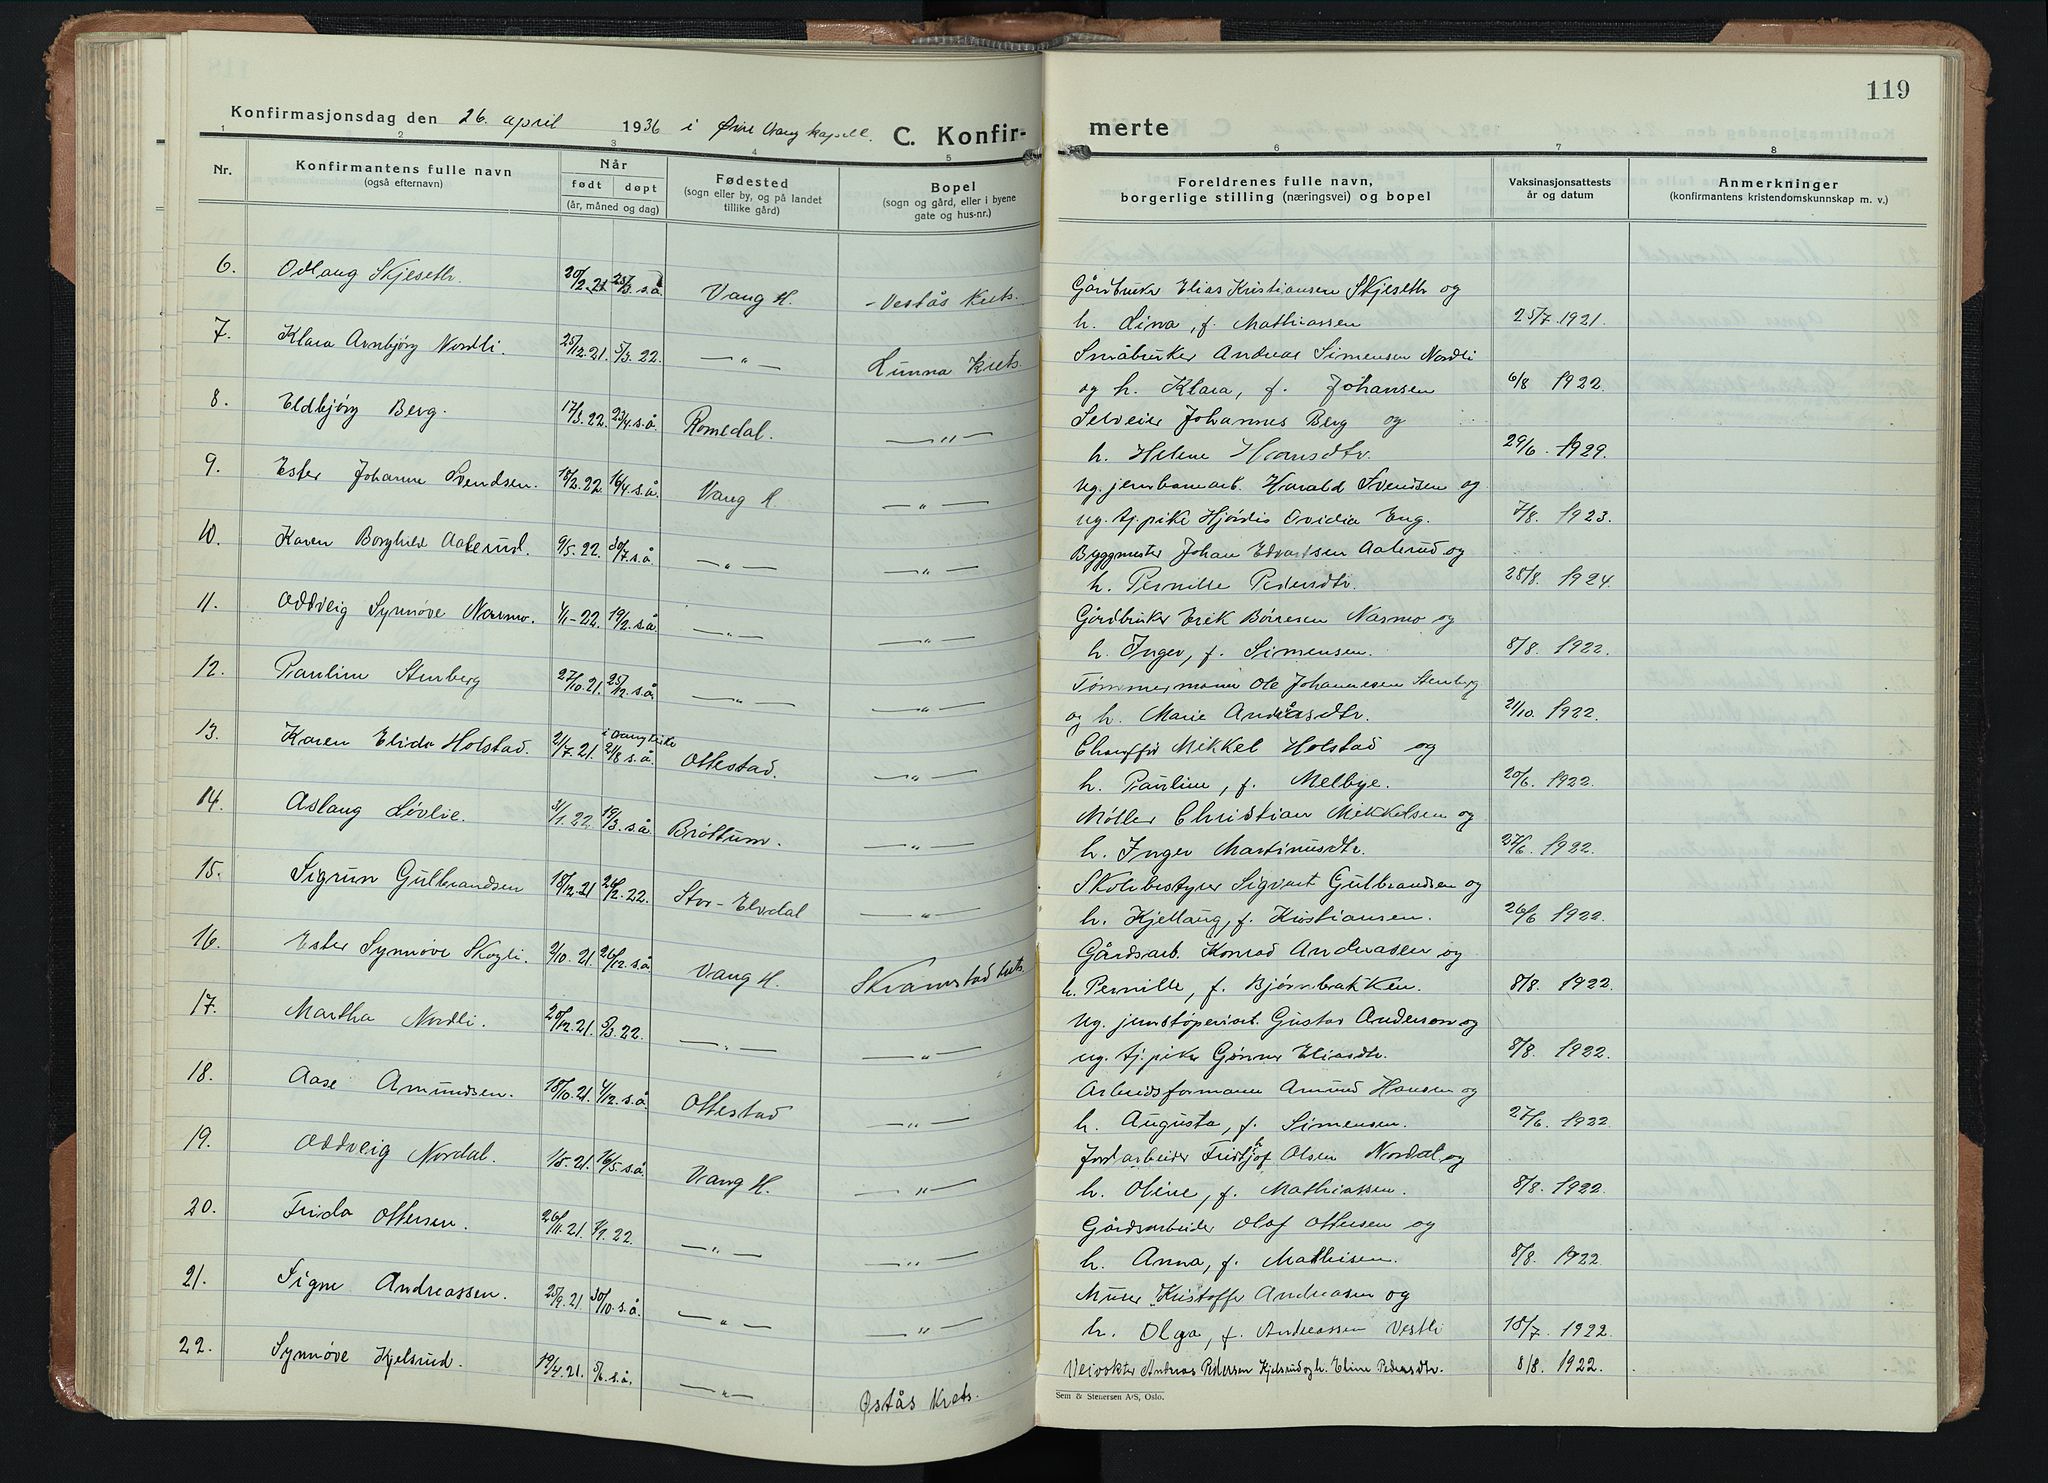 119
Konfirmasjonsdag den 26. april 1936 i Øvre Vang kapell. C. Konfir- merte
1 2 3 4 5 6 7 8
Nr.
Konfirmantens fulle navn
(også efternavn)
Når
født døpt
(år, måned og dag)
Fødested
(sogn eller by, og på landet
tillike gård)
Bopel
(sogn og gård, eller i byene
gate og hus-nr.)
Foreldrenes fulle navn,
borgerlige stilling (næringsvei) og bopel
Vaksinasjonsattests
år og datum
Anmerkninger
(konfirmantens kristendomskunnskap m. v.)
6. Odlaug Skjeseth 20/2.21. s.å. Vang H. Vestås Krets. Gårdbruker Elias Kristiansen Skjeseth og
h. Lina, f. Mathiassen 25/7.1921.
7. Klara Arnbjørg Nordli. 25/12.21. 5/3.22. —"— Lunna Krets. Småbruker Andreas Simensen Nordli
og h. Klara, f. Johansen 6/8 1922.
8. Eldbjørg Berg. 17/3.22. 23/4.s.å. Romedal. —"— Selveier Johannes Berg og
h. Helene Hansdtr. 29/6. 1929.
9. Ester Johanne Svendsen. 18/2.22. 16/4.s.å. Vang H. —"— Ug. jernbanearb. Harald Svendsen og
ug. tj.pike Hjørdis Ovidia Eng. 7/8. 1923.
10. Karen Borghild Aaberud. 9/5.22. 30/7.s.å. —"— —"— Byggmester Johan Edvardsen Aaberud og
h. Pernille Pedersdtr. 28/8. 1924.
11. Oddveig Synnøve Narmo. 1/1-22. 19/2.s.å. —"— —"— Gårdbruker Erik Børresen Narmo og
h. Inger, f. Simensen. 8/8. 1922.
12. Pauline Stenberg 27/10.21. 25/12.s.å. —"— —"— Tømmermann Ole Johannesen Stenberg
og h. Marie Andreasdtr. 21/10. 1922.
13. Karen Elida Holstad. 21/7.21. i Vang kirke 21/8 s.å. Ottestad. —"— Chauffør Mikkel Holstad og
h. Pauline, f. Melbye. 20/6. 1922.
14. Aslaug Løvlie. 3/1.22. 19/3.s.å. Brøttum. —"— Møller Christian Mikkelsen og
h. Inger Martinusdtr. 27/6. 1922.
15. Sigrun Gulbrandsen 18/12.21 26/2.22. Stor-Elvdal —"— Skolebestyrer Sigvart Gulbrandsen og
h. Kjellaug, f. Kristiansen. 26/6 1922.
16. Ester Synnøve Skogli. 2/10.21. 26/12.s.å Vang H. Skramstad krets Gårdsarb. Konrad Andreasen og
h. Pernille, f. Bjørnbakken. 8/8. 1922.
17. Martha Nordli. 20/12.21. 22. —"— —"— Ug. jernstøperiarb. Gustav Anderson og
ug. tj.pike Gønner Eliasdtr. 8/8. 1922.
18. Aase Amundsen. 18/10.21. 4/12.s.å. Ottestad —"— Arbeidsformann Amund Hansen og
h. Augusta, f. Simensen. 27/6. 1922
19. Oddveig Nordal. 21. 16/5.s.å. Vang H. —"— Jordarbeider Fridthjof Olsen Nordal og
h. Oline, f. Mathiassen. 8/8. 1922.
20. Frida Ottersen. 26/11.21. 22. —"— —"— Gårdsarbeider Olaf Ottersen og
h. Anna, f. Mathisen. 8/8. 1922.
21. Signe Andreassen. 25/9.21. 30/10.s.å. —"— —"— Murer Kristoffer Andreasen og
h. Olga, f. Andreassen Vestli 18/7. 1922.
22. Synnøve Kjelsrud. 19/4.21. s.å. —"— Østås Krets. Veivokter Andreas Pedersen Kjelsrud og h. Eline Pedersdtr. 8/8. 1922.
Sem & Stenersen A/S, Oslo.